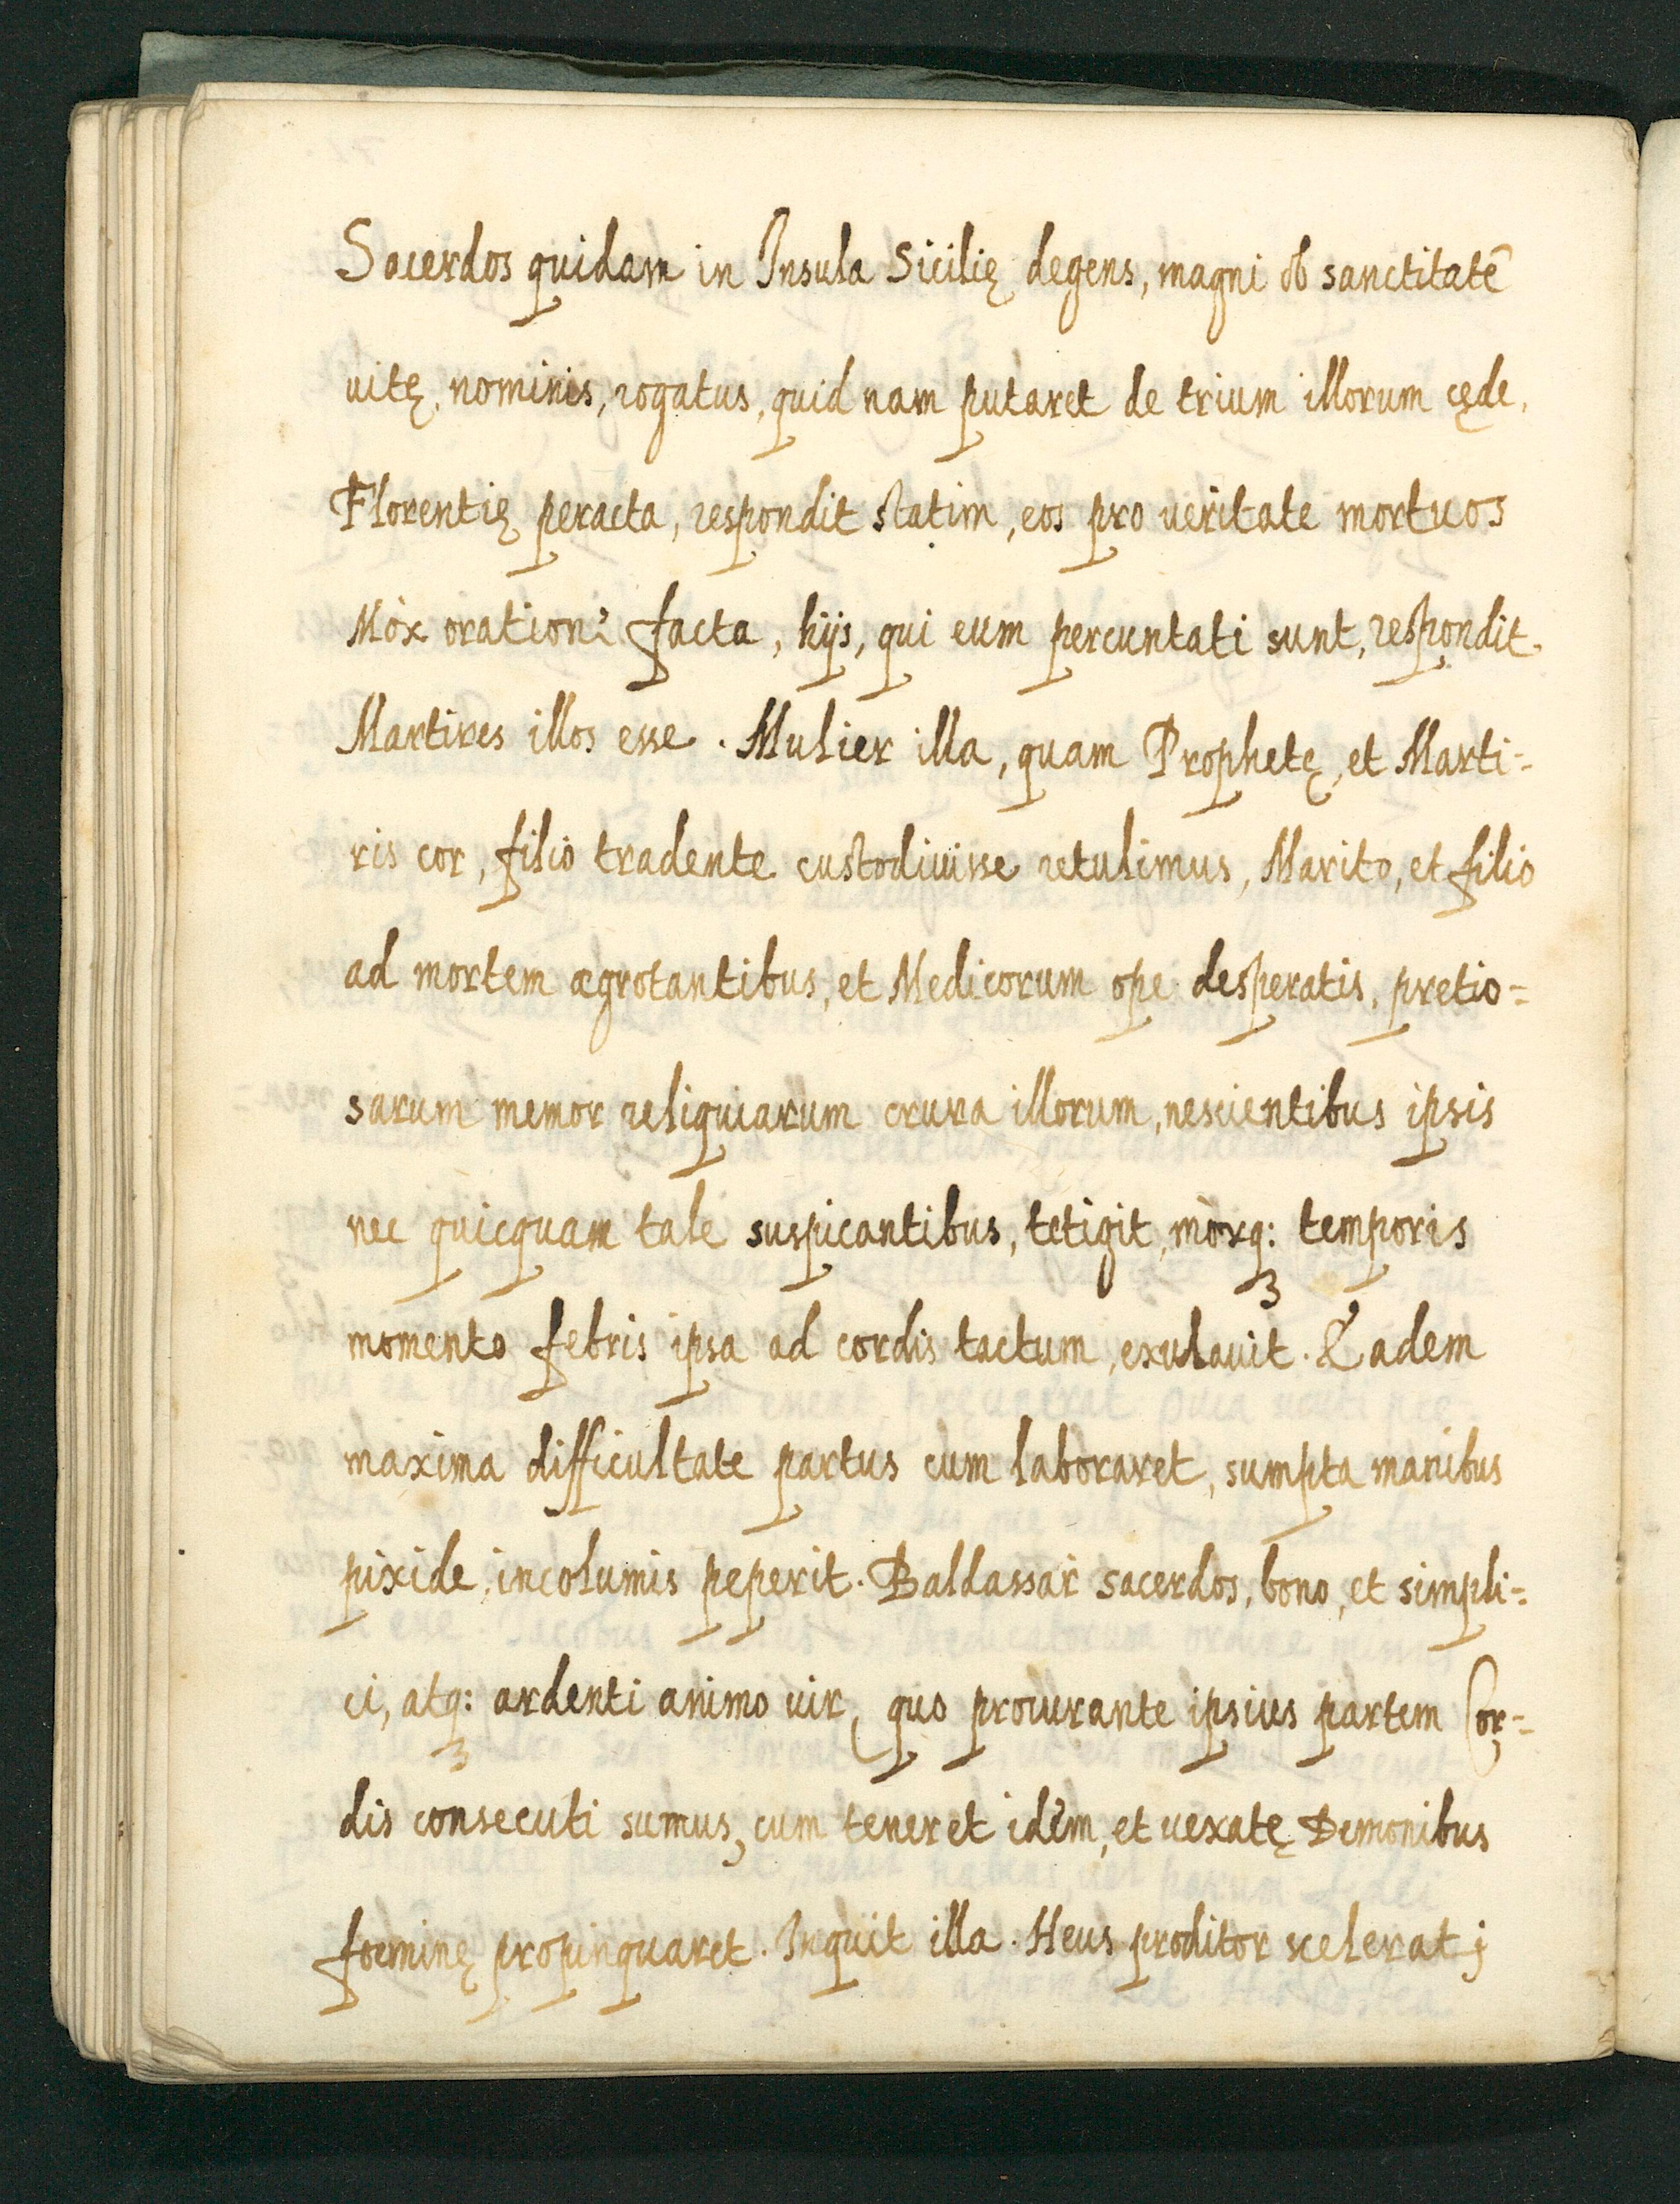 Sacerdos quidam in Insula Sicilię degens, magni ob sanctitatē
uitę, nominis, rogatus, quid nam putaret de trium illorum cęde,
Florentię peracta, respondit statim, eos pro ueritate mortuos
Mòx facta, hijs, qui eum percuntati sunt, respondit.
Martires illos esse. Mulier illa, quam Prophetę, et Marti=
ris cor, filio tradente custodiuisse retulimus, Marito, et filio
ad mortem ægrotantibus, et Medicorum ope desperatis, pretio=
sarum memor reliquiarum crura illorum, nescientibus ipsis
nec quicquam tale suspicantibus, tetigit, mòxq: temporis
momento febris ipsa ad cordis tactum, exulauit. Eadem
maxima difficultate partus cum laboraret, sumpta manibus
pixide, incolumis peperit. Baldassar sacerdos, bono, et simpli=
ci, atq: ardenti animo uir, quo procurante ipsius partem Cor=
dis consecuti sumus, cum teneret idem, et uexatę Demonibus
foeminę propinquaret. Inquit illa. Heus proditor sceleratj